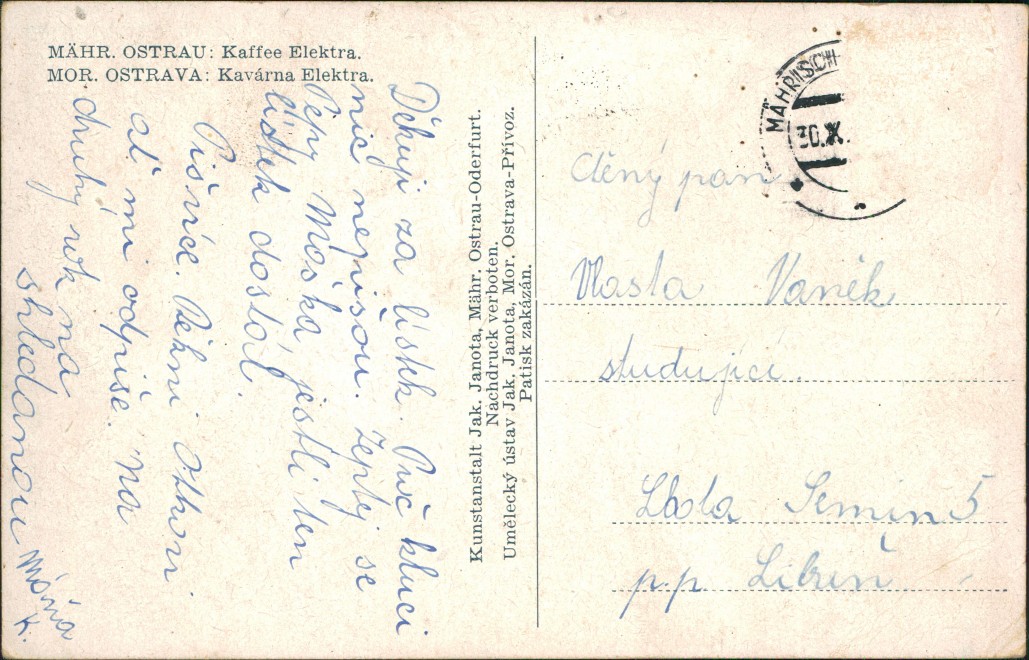 MÄHR. OSTRAU: Kaffee Elektra.
MOR. OSTRAVA: Kavárna Elektra.
Děkuji za lístek. Proč kluci
nic nepisou. Zeptej se
Pepy Moška jestli ten
lístek dostal.
Piš více. Řekni
ať mi odpíše. Na
druhý rok na
shledanou
Máňa
K.
Kunstanstalt Jak. Janota, Mähr. Ostrau-Oderfurt.
Nachdruck verboten.
Umělecký ústav Jak. Janota, Mor. Ostrava-Přívoz.
Patisk zakázán.
MÄHRISCH
30.X.
Ctěný pan
Vlasta Vaněk
studující.
Lhota Semín 5
p.p.